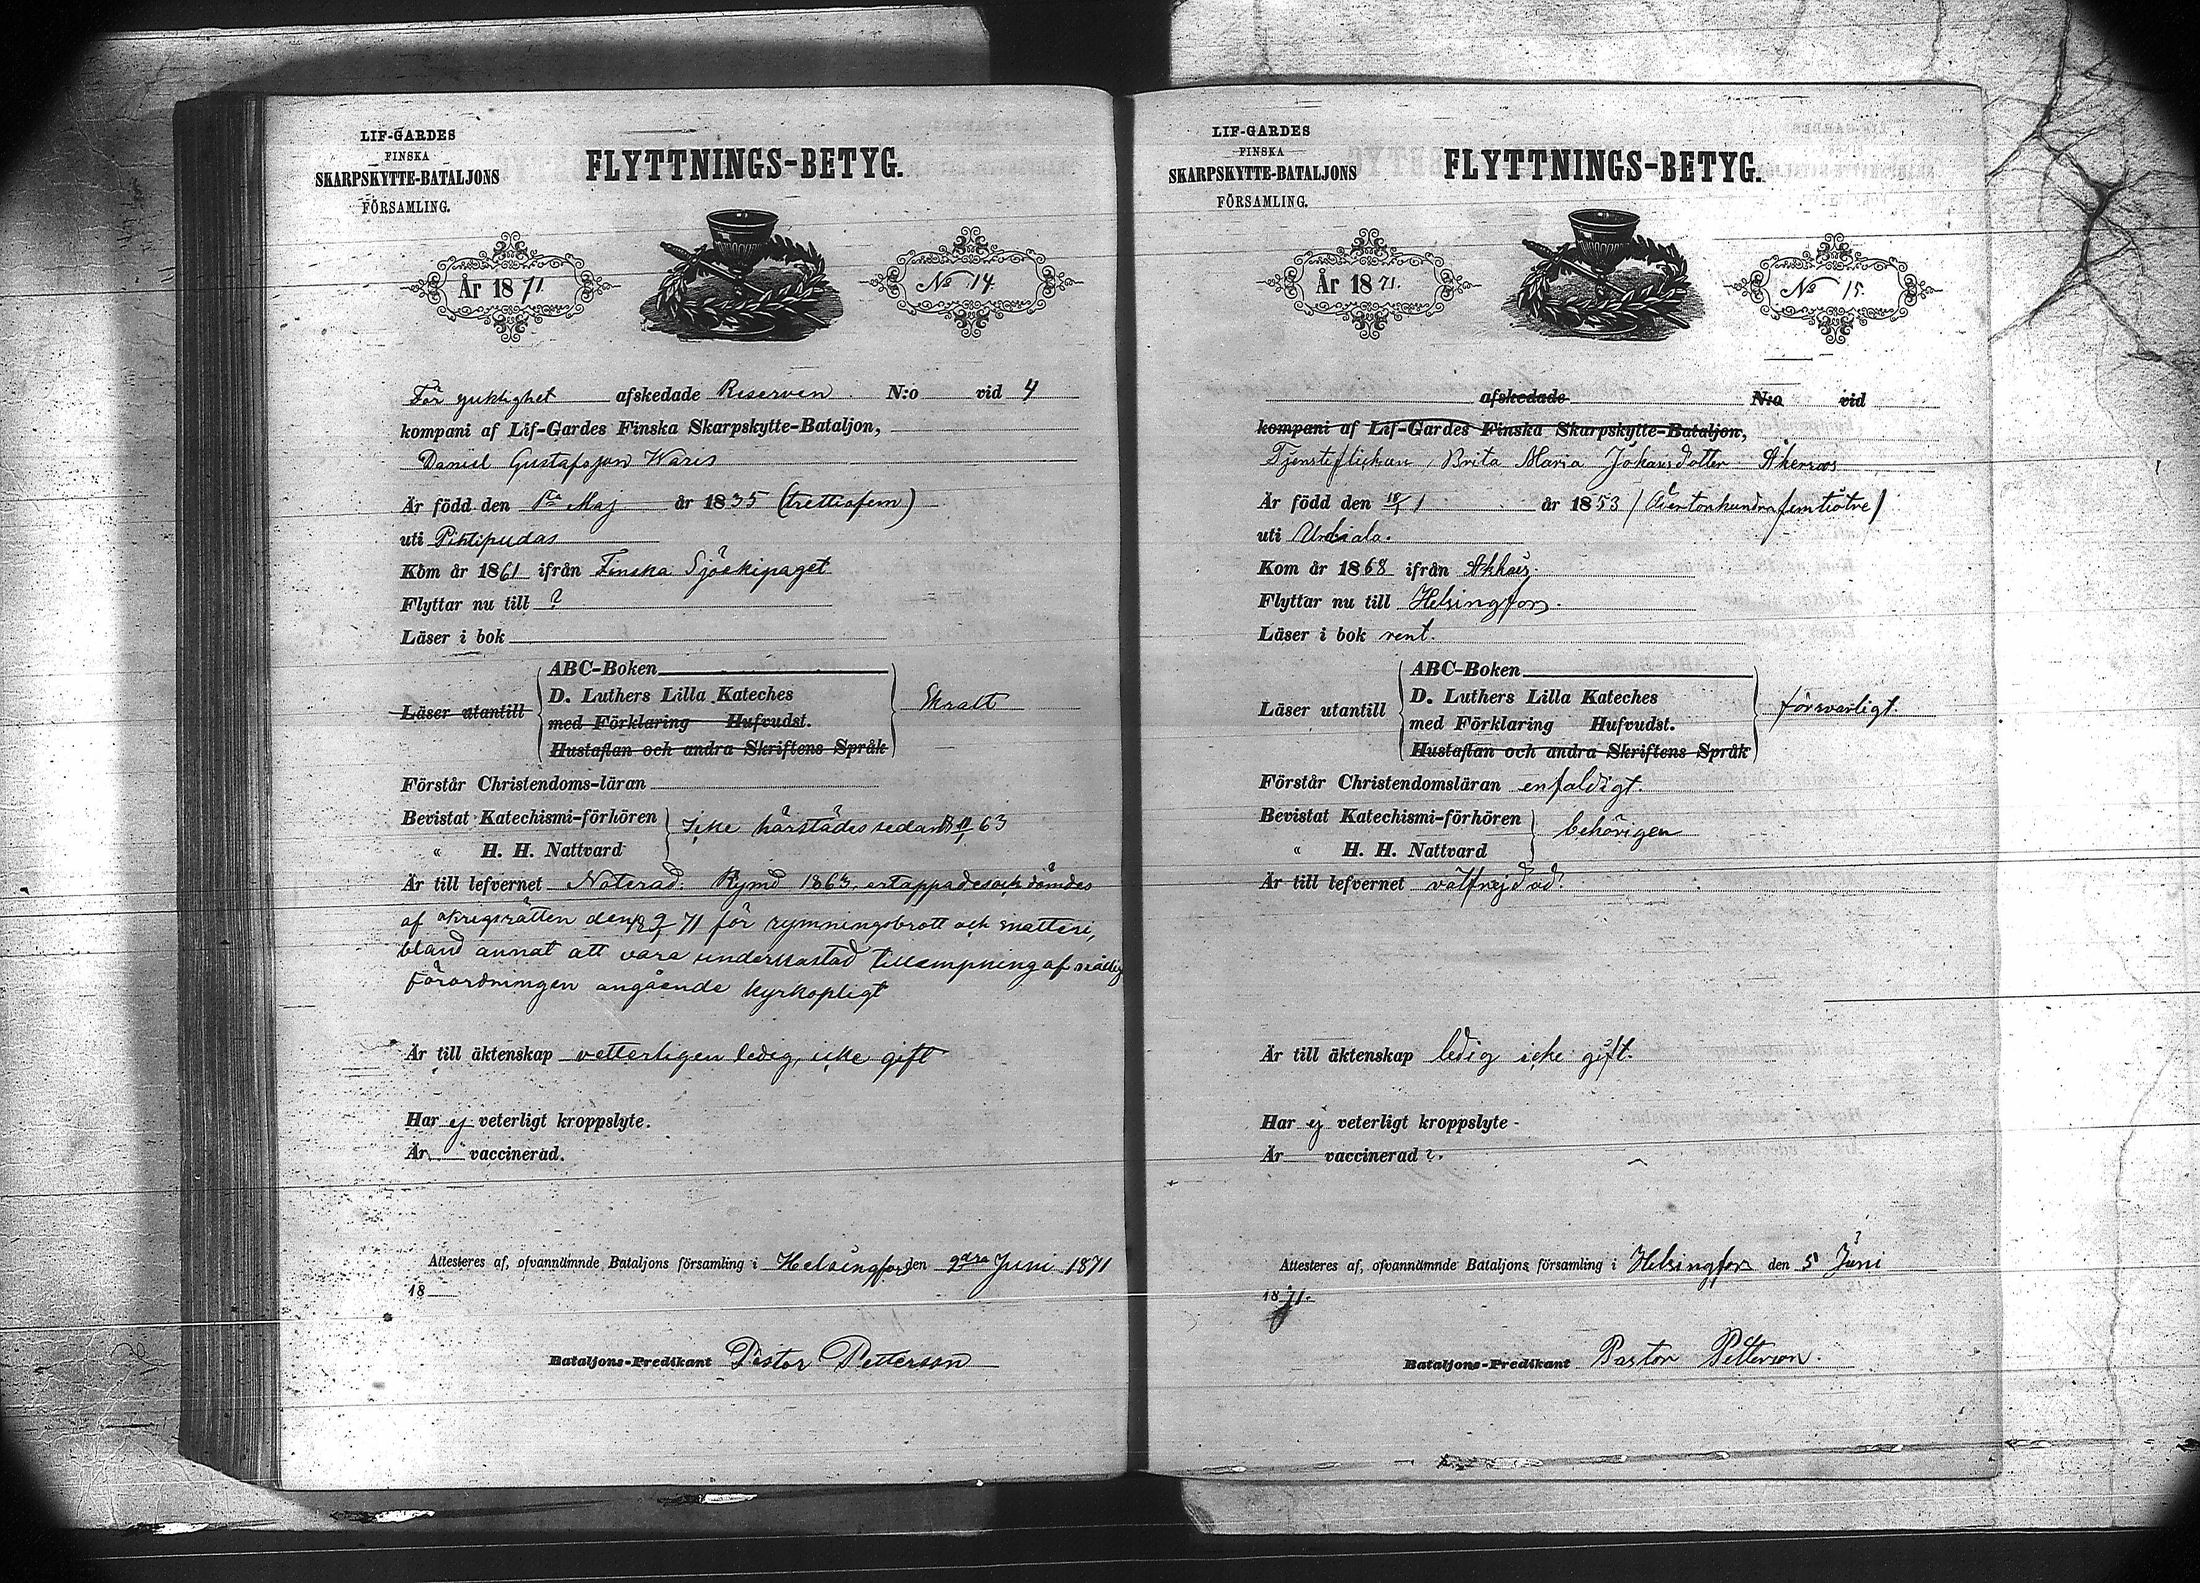 LIF-GARDES
FINSKA
SKARPSKYTTE-BATALJONS
FÖRSAMLING.
FLYTTNINGS-BETYG.
År 1871.
No 14.
För sjuklighet afskedade Reserven N:o vid 4
kompani af Lif-Gardes Finska Skarpskytte-Bataljon,
Daniel Gustafsson Wares
Är född den 1sta Maj år 1835 (trettiofem)
uti Pihtipudas
Kom år 1861 ifrån Finska Sjöekipaget
Flyttar nu till ?
Läser i bok
ABC-Boken
D. Luthers Lilla Kateches
Läser utantill
med Förklaring Hufvudst.
Hustaflan och andra Skriftens Språk
Förstår Christendoms-läran
Bevistat Katechismi-förhören
Icke härstädes sedan 63
" H. H. Nattvard
Är till lefvernet Noterad. Rymd 1863, ertappades och dömdes
af krigsrätten den 71 för rymningsbrott och snatteri,
bland annat att vara underkastad tillämpning af
Förordningen angående kyrkopligt
Är till äktenskap vetterligen ledig, icke gift
Har ej veterligt kroppslyte.
Är vaccinerad.
Attesteras af, ofvannämnde Bataljons församling i Helsingfors den 9dra Juni 1871
18
Bataljons-Predikant Pastor Petterson
LIF-GARDES
FINSKA
SKARPSKYTTE-BATALJONS
FÖRSAMLING.
FLYTTNINGS-BETYG.
År 1871.
No 15.
afskedade N:o vid
kompani af Lif-Gardes Finska Skarpskytte-Bataljon,
Tjensteflickan, Brita Maria Johansdotter Åkerroos
Är född den 1 år 1853 / Adertonhundrafemtiotre /
uti Urdiala.
Kom år 1868 ifrån Akkas.
Flyttar nu till Helsingfors.
Läser i bok rent.
ABC-Boken
D. Luthers Lilla Kateches
Läser utantill försvarligt.
med Förklaring Hufvudst.
Hustaflan och andra Skriftens Språk
Förstår Christendomsläran enfaldigt.
Bevistat Katechismi-förhören
behörigen
" H. H. Nattvard
Är till lefvernet välfrejdad.
Är till äktenskap ledig icke gift.
Har ej veterligt kroppslyte -
Är vaccinerad ?.
Attesteres af, ofvannämnde Bataljons församling i Helsingfors den 5 Juni
1871.
Bataljons-Predikant Pastor Petterson.